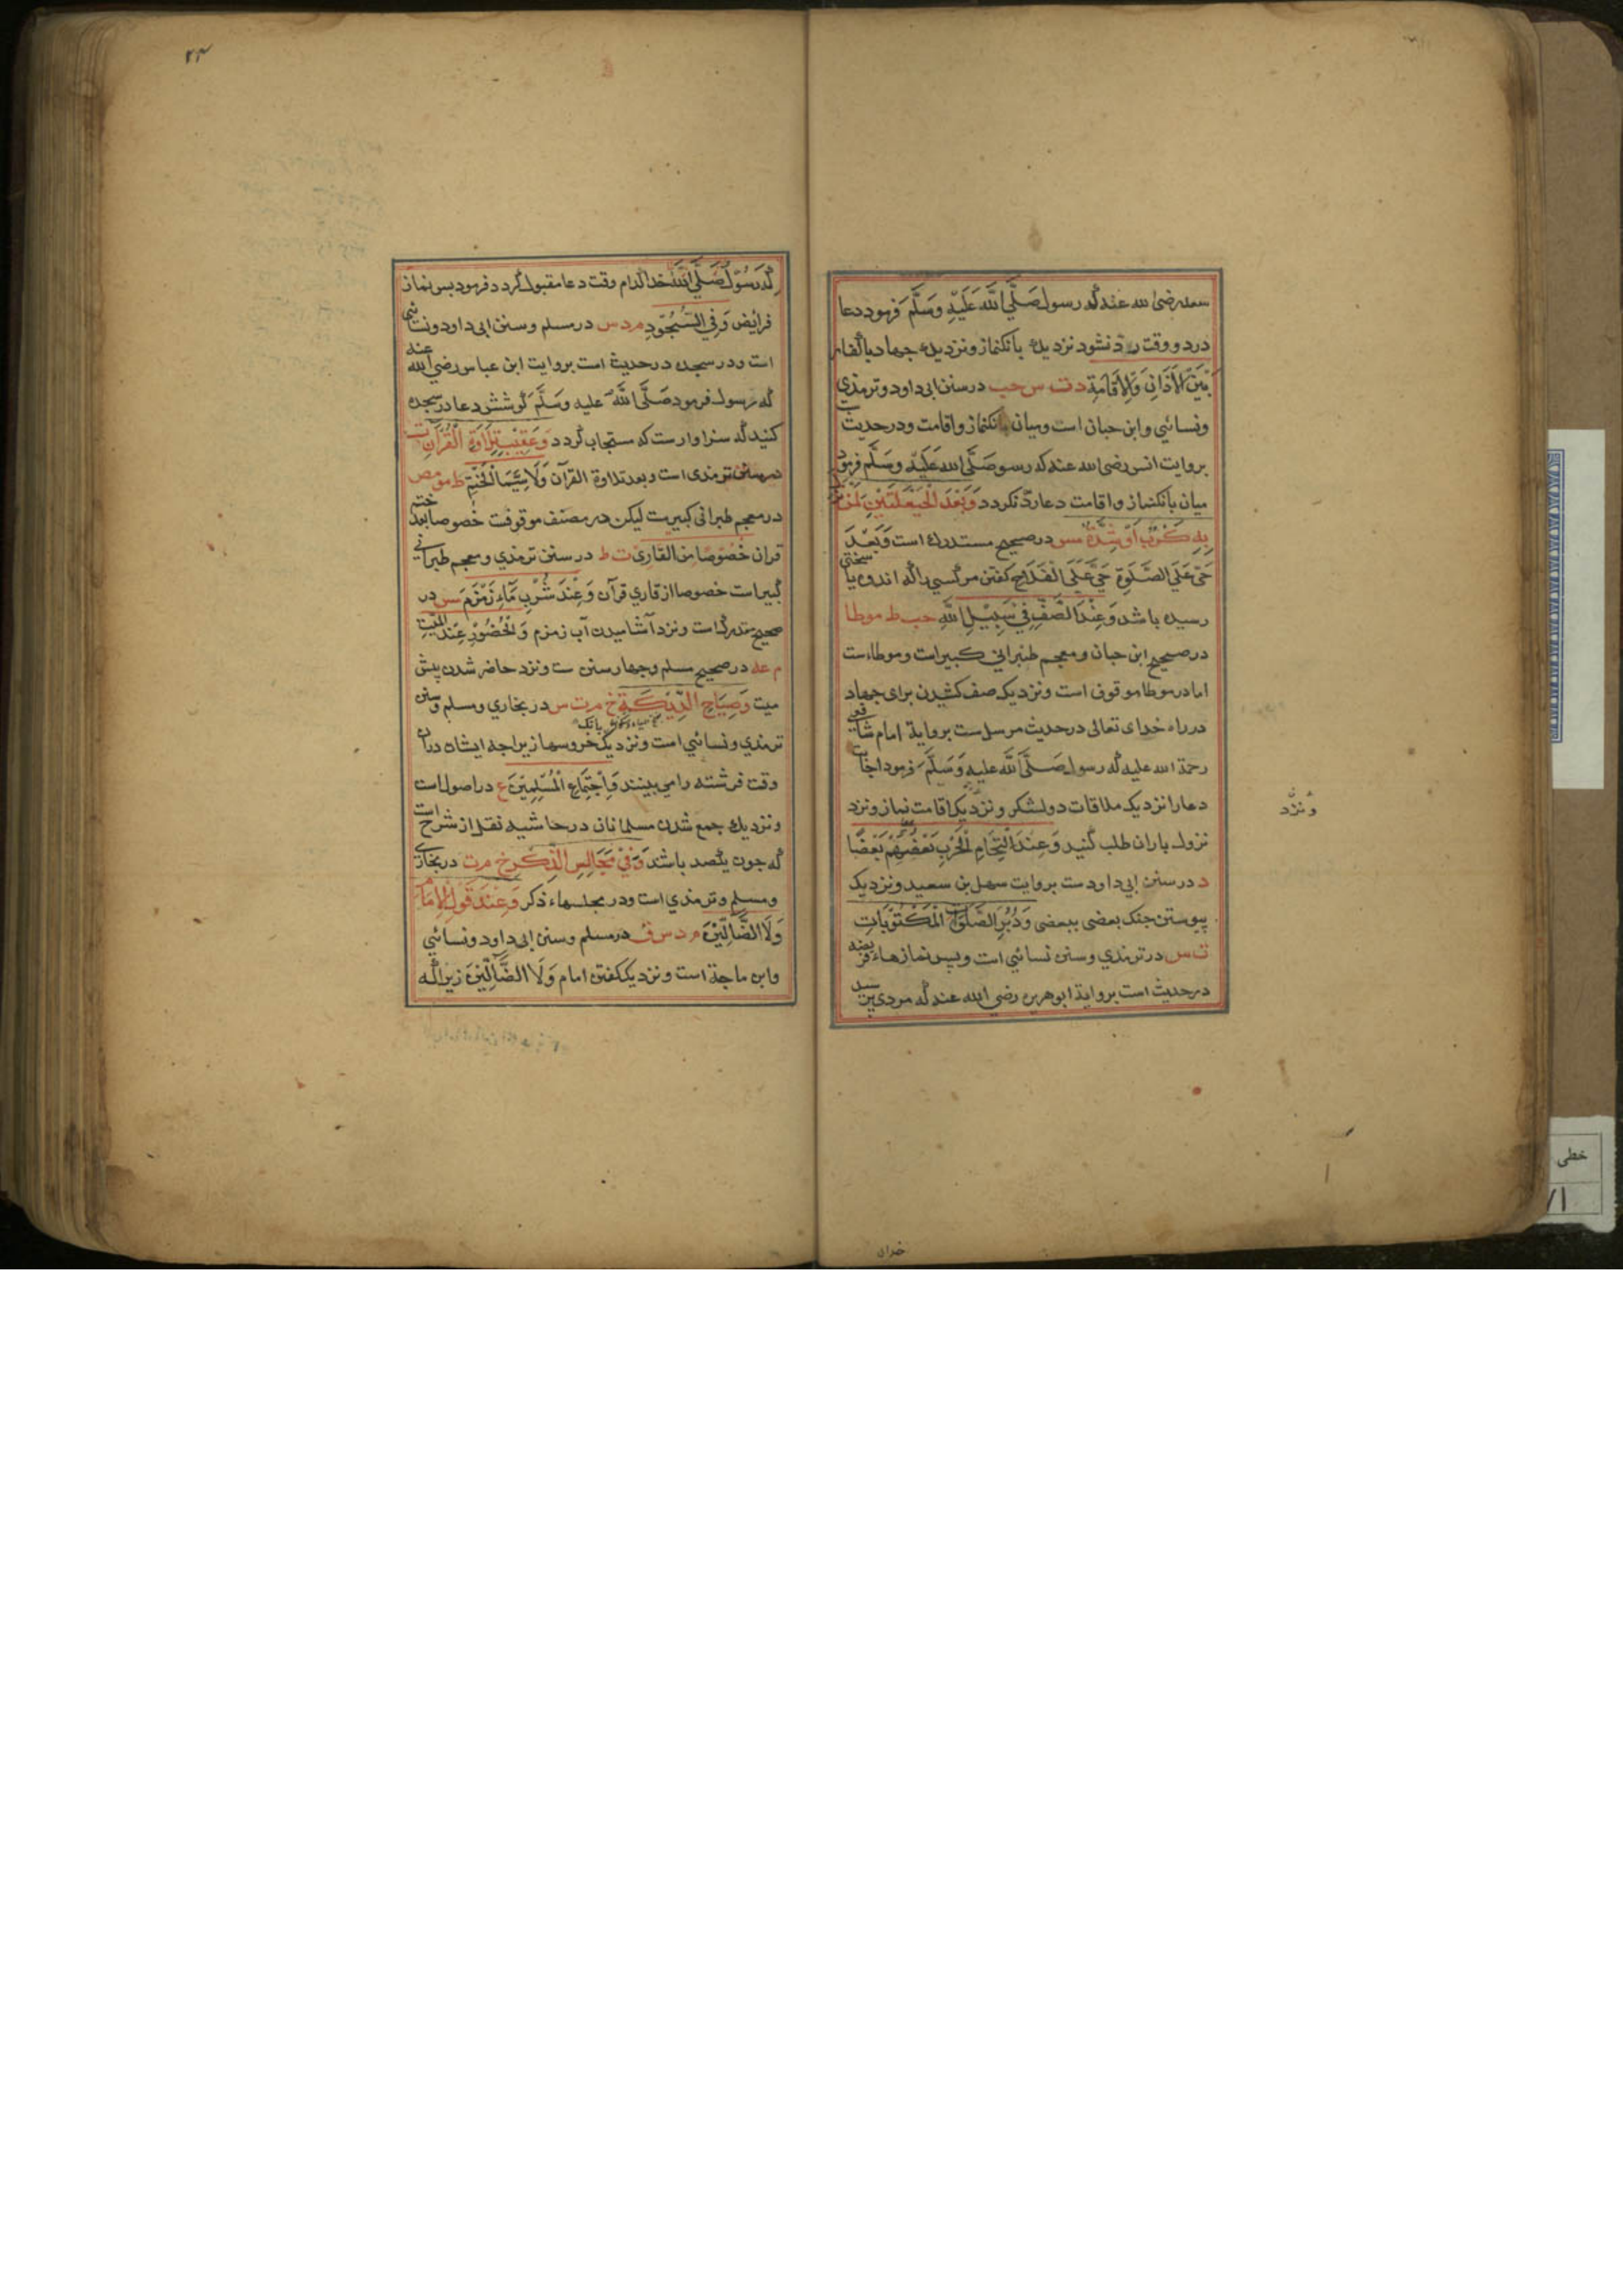 سعد رضی الله عنه که رسول صَلَّی اللّٰه عَلَیْهِ وَسَلَّمَ فرمود دعا
در دو وقت رد نشود نزدیک بانکنماز و نزدیک جهاد با کفار
بَیْنَ الْاَذَانِ وَالْاِقَامَةِ د ت س حب در سنن ابی داود و ترمذی
ونسائی وابن حبان است ومیان بانکنماز واقامت ودر حدیث
بروایت انس رضی الله عنه که رسول صَلَّی الله عَلَیْهِ وَسَلَّم فرمود
میان بانکنماز واقامت دعا ردّ نکردد وَبَعْدَ الْحَیْعَلَتَیْنِ لِمَنْ
بِهِ کَرْبٌ اَوْ شِدَّةٌ مس در صحیح مستدرك است وَبَعْدَ
حَیَّ عَلَی الصَّلٰوةِ حَیَّ عَلَی الْفَلَاحِ کفتن مر کسی را که اندوه یا سختی
رسیده باشد وَعِنْدَ الصَّفِّ فِیْ سَبِیْلِ اللّٰهِ حب ط موطا
در صحیح ابن حبان ومعجم طبرانی کبیر است وموطا است
اما در موطا موقوف است ونزدیک صف کشیدن برای جهاد
در راه خدای تعالی در حدیث مرسل ست بروایة امام شافعی
رحمة الله علیه که رسول صَلَّی اللّٰه علیه وَسَلَّمَ فرمود اجابت
دعا را نزدیک ملاقات دو لشکر و نزدیک اقامت نماز ونزد
ونزد
نزول باران طلب کنید وَعِنْدَ الْتِحَامِ الْحَرْبِ بَعْضُهُمْ بَعْضًا
د در سنن ابی داود ست بروایت سهل بن سعید ونزدیک
پیوستن جنک بعضی ببعضی وَدُبُرَ الصَّلَوَاتِ الْمَکْتُوْبَاتِ
ت س در ترمذی وسنن نسائی است وپس نمازهاء فریضه
در حدیث است بروایة ابو هریره رضی الله عنه که مردی پرسید
خدای
۲۳
که رَسُوْل صَلَّی اللّٰه خدا کدام وقت دعا مقبول کردد فرمود پس نماز
فرایض وَفِی السُّجُوْدِ م د س در مسلم وسنن ابی داود ونسائی
است ودر سجده در حدیث است بروایت ابن عباس رضی الله عنه
که رسول فرمود صَلَّی اللّٰه علیه وسَلَّمَ کوشش دعا در سجده
کنید که سزاوارست که مستجاب کردد وَعَقِیْبَ تِلَاوَةِ الْقُرْآنِ ت
در سنن ترمذی است وبعد تلاوة القرآن وَلَا سِیَّمَا الْخَتْمِ ط مو مص
در معجم طبرانی کبیرست لیکن در مصنف موقوفت خصوصا بعد ختم
قران خُصُوْصًا مِنَ الْقَارِئ ت ط در سنن ترمذی ومعجم طبرانی
کبیر است خصوصا از قاری قرآن وَعِنْدَ شُرْبِ مَآءِ زَمْزَمَ مس در
صحیح مستدرك است ونزد آشامیدن آب زمزم وَالْحُضُوْرِ عِنْدَ الْمَیِّتِ
م عه در صحیح مسلم وچهار سنن ست ونزد حاضر شدن پیش
میت وَصِیَاحِ الدِّیَکَةِ خ م ت س در بخاری ومسلم وسنن
ترمذی ونسائی است ونزدیک بانک خروسها زیراچه ایشان دران
وقت فرشته را می بینند وَاجْتِمَاعِ الْمُسْلِمِیْنَ ع در اصول است
ونزدیك جمع شدن مسلمانان در حاشیه نقل از شرح است
که چون یکصد باشند وَفِیْ مَجَالِسِ الذِّکْرِ خ م ت در بخاری
ومسلم وترمذی است ودر مجلسهاء ذکر وَعِنْدَ قَوْلِ الْاِمَامِ
وَلَا الضَّآلِّیْنَ م د س ق در مسلم وسنن ابی داود ونسائی
وابن ماجة است ونزدیک کفتن امام وَلَا الضَّآلِّیْنَ زیراکه
خطی